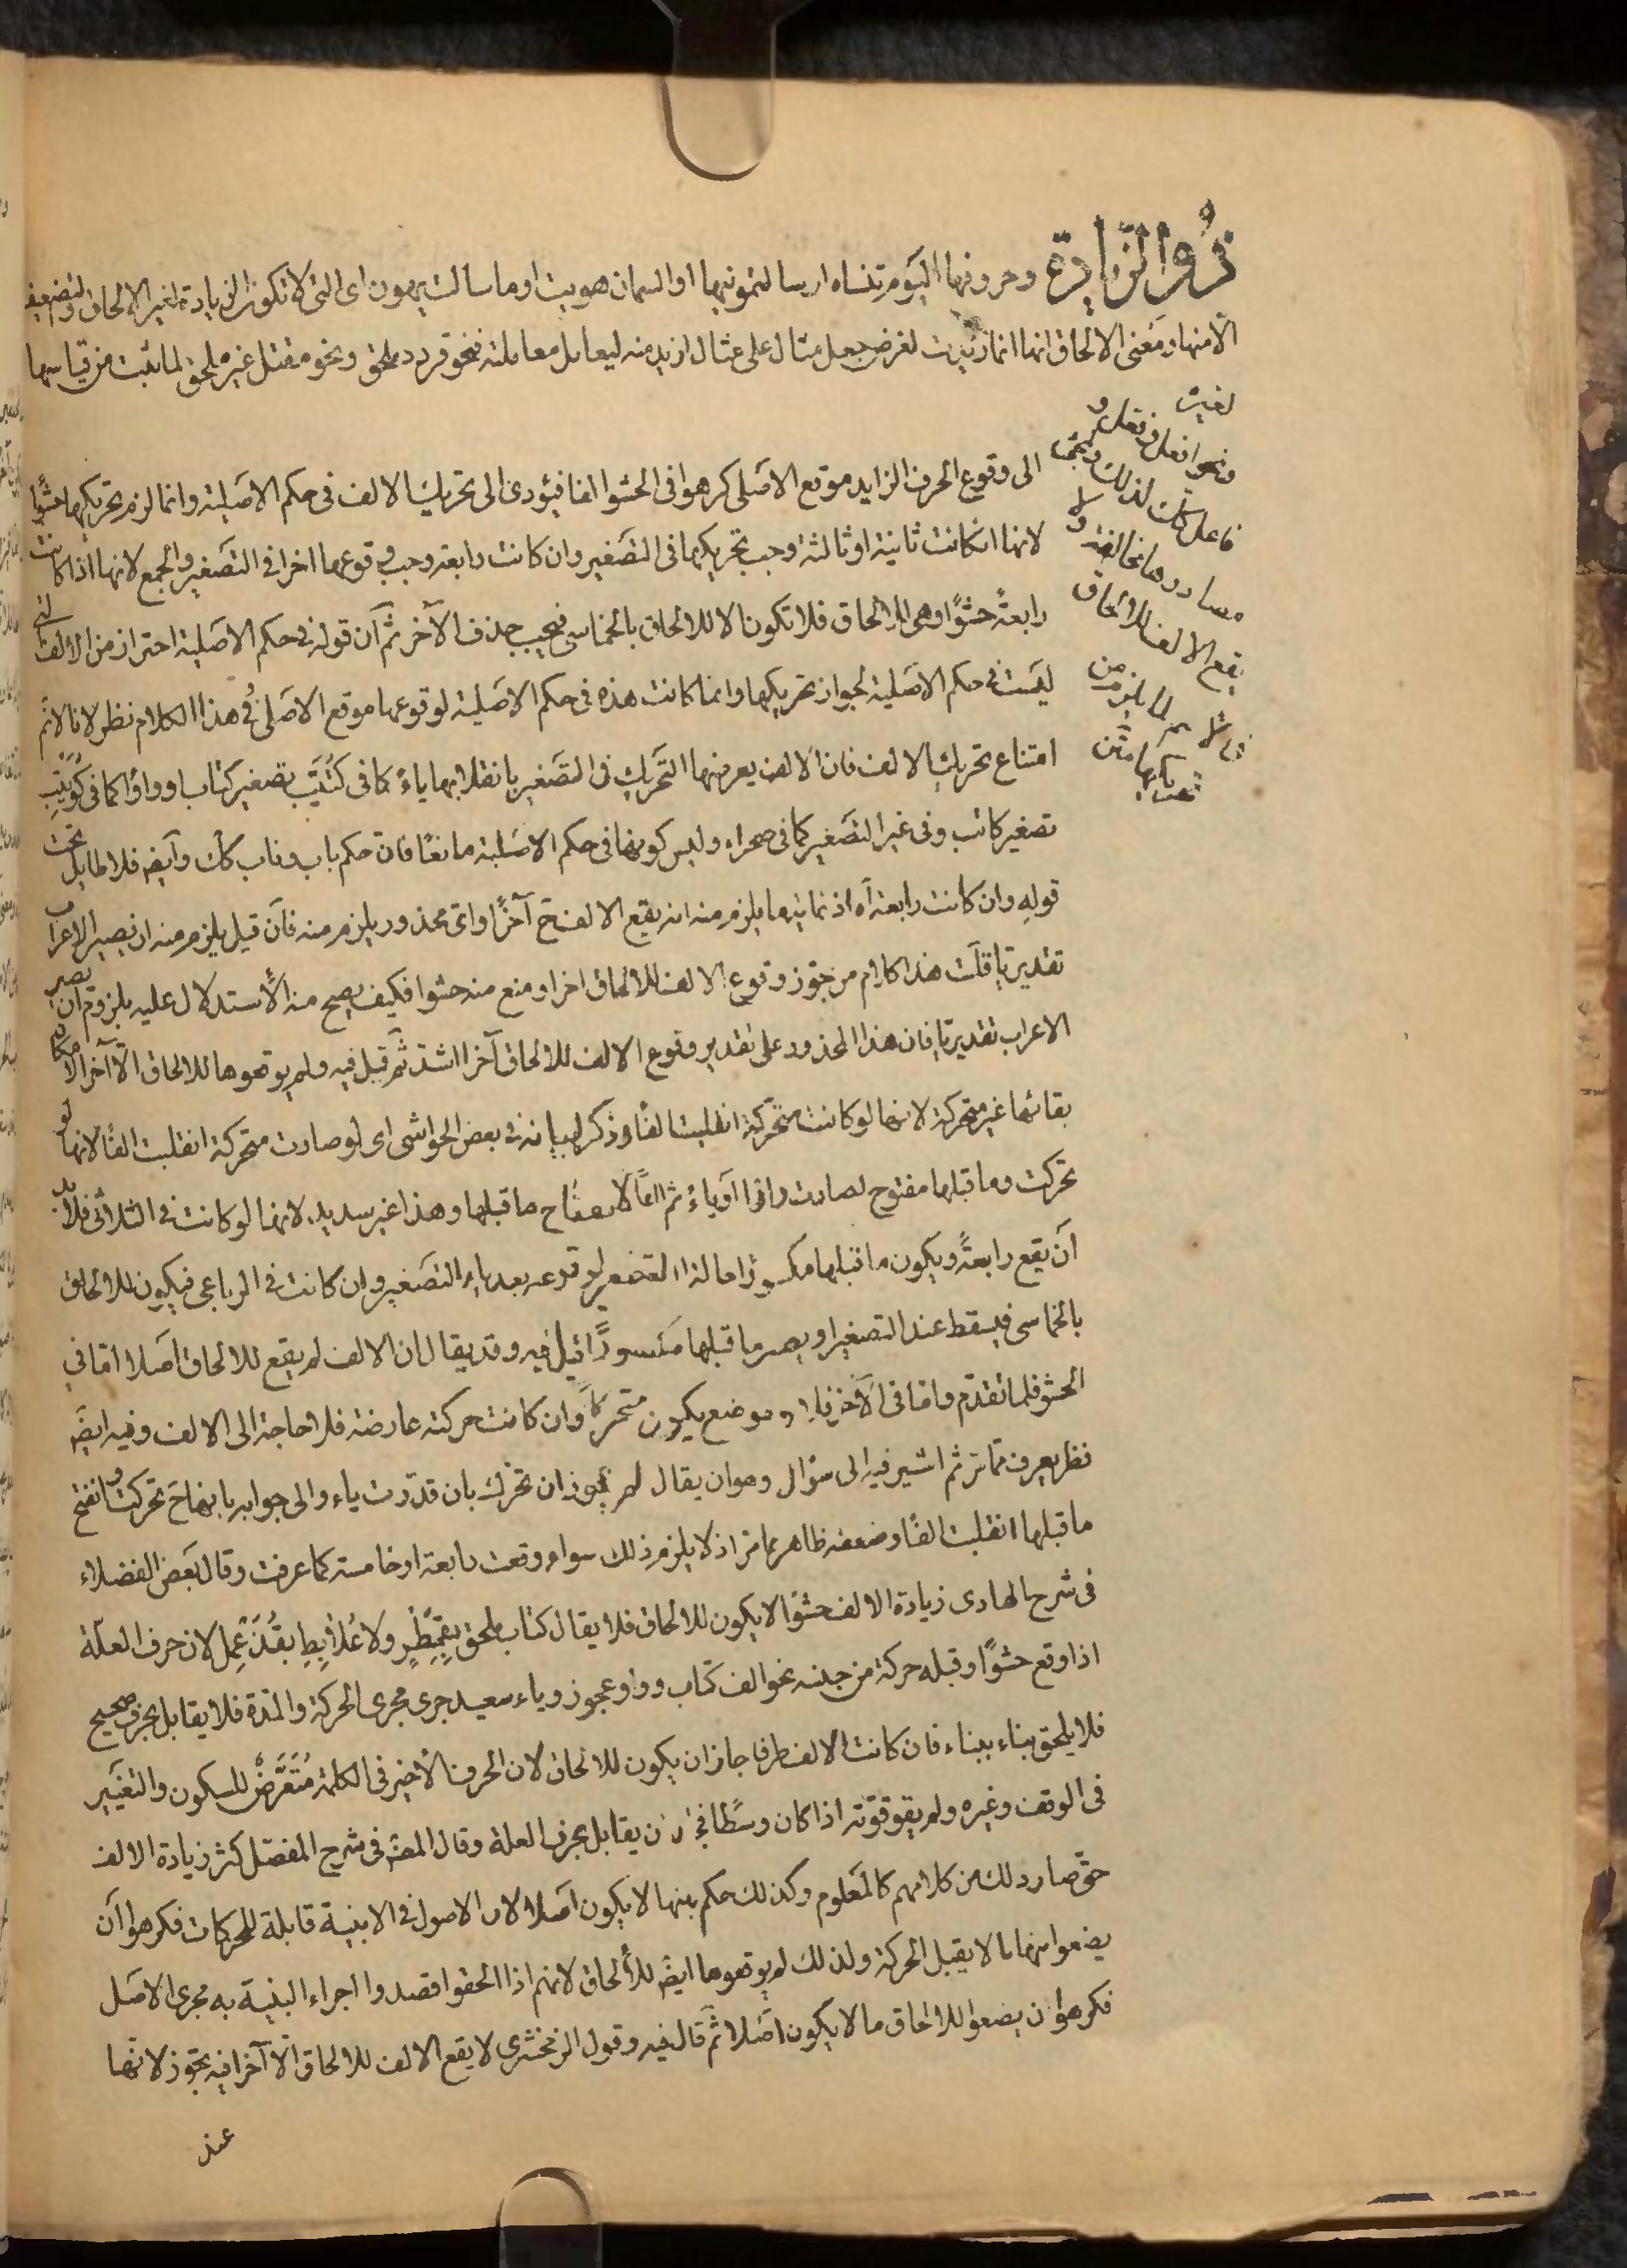 ذو الزيادة وحروفها اليوم تنساه او سالتمونيها او السمان هويت او ما سالت يهون اى التى لا تكون الزيادة لغير الالحاق والتضعيف
الا منها ومعنى الالحاق انها انما زيدت لغرض جعل مثال على مثال ازيد منه ليعامل معاملته فنحو قردد ملحق ونحو مقتل غير ملحق لما ثبت من قياسها
لغيره
ونحو افعل وفعل و
فاعل كك لذلك ولمجئ
مصادرها مخالفة ولا
يقع الالف للالحاق
فى الاسم لما يلزم من
تحريكها
الى وقوع الحرف الزايد موقع الاصلى كرهوا فى الحشو الفا فيؤدى الى تحريك الالف فى حكم الاصلية وانما لزم تحريكها حشوًا
لانها ان كانت ثانية او ثالثة وجب تحريكها فى التصغير وان كانت رابعة وجب وقوعها اخرا فى التصغير والجمع لانها اذا كانت
رابعةً حشوًا وهى للالحاق فلا تكون الا للالحاق بالخماسى فيجب حذف الآخر ثم ان قوله فى حكم الاصلية احتراز من الالف التى
ليست فى حكم الاصلية لجواز تحريكها وانما كانت هذه فى حكم الاصلية لوقوعها موقع الاصلى وفى هذا الكلام نظر لانا لا نم
امتناع تحريك الالف فان الالف يعرضها التحريك فى التصغير بانقلابها ياءً كما فى كُتَيّب تصغير كتاب او واوًا كما فى كُوَيْتِب
تصغير كاتب وفى غير التصغير كما فى صحراء وليس كونها فى حكم الاصلية مانعًا فان حكم باب وناب كك وايض فلا طايل تحت
قوله وان كانت رابعة آه اذ غايتها يلزم منه انه يقع الالف ح آخرًا واى محذور يلزم منه فان قيل يلزم منه ان يصير الاعراب
تقديريًا قلت هذا كلام من جوّز وقوع الالف للالحاق اخرا ومنع منه حشوا فكيف يصح منه الاستدلال عليه بلزوم ان يصير
الاعراب تقديريًا فان هذا المحذور على تقدير وقوع الالف للالحاق آخرا اشد ثم قيل فيه ولم يوقعوها للالحاق الا آخرا لامكان
بقائها غير متحركة لانها لو كانت متحركة انقلبت الفًا وذكر لبيانه فى بعض الحواشى اى لو صارت متحركة انقلبت الفًا لانها لو
تحركت وما قبلها مفتوح لصارت واوا او ياءً ثم الفًا لانفتاح ما قبلها وهذا غير سديد لانها لو كانت فى الثلاثى فلا بد
ان يقع رابعةً ويكون ما قبلها مكسورًا حالة التصغير لوقوعه بعد ياء التصغير وان كانت فى الرباعى فيكون للالحاق
بالخماسى فيسقط عند التصغير او يصير ما قبلها مكسورًا قيل فيه وقد يقال ان الالف لم يقع للالحاق اصلا اما فى
الحشو فلما تقدم واما فى الآخر فلانه موضع يكون متحركًا وان كانت حركته عارضة فلا حاجة الى الالف وفيه ايض
نظر يعرف مما مر ثم اشير فيه الى سؤال وهو ان يقال لم يجوز ان تحرك بان قدّرت ياء والى جوابه بانها ح تحركت وانفتح
ما قبلها انقلبت الفًا وضعفه ظاهر مما مر اذ لا يلزم ذلك سواء وقعت رابعة او خامسة كما عرفت وقال بعض الفضلاء
فى شرح الهادى زيادة الالف حشوًا لا يكون للالحاق فلا يقال كتاب ملحق بقِمَطْرٍ ولا عُلابِطٍ بقُذَعْمِل لان حرف العلة
اذا وقع حشوًا وقبله حركة من جنسه نحو الف كتاب وواو عجوز وياء سعيد جرى مجرى الحركة والمدة فلا يقابل بحرف صحيح
فلا يلحق بناء ببناء فان كانت الالف طرفا جاز ان يكون للالحاق لان الحرف الاخير فى الكلمة مُتَعَرِّضٌ للسكون والتغيير
فى الوقف وغيره ولم يقو قوّته اذا كان وسطًا فجاز ان يقابل بحرف العلة وقال المص فى شرح المفصّل كثر زيادة الالف
حتى صار ذلك من كلامهم كالمعلوم وكذلك حكم بانها لا يكون اصلا لان الاصول فى الابنية قابلة للحركات فكرهوا ان
يضعوا منها ما لا يقبل الحركة ولذلك لم يوقعوها ايض للالحاق لانهم اذا الحقوا قصدوا اجراء البنية به مجرى الاصل
فكرهوا ان يضعوا للالحاق ما لا يكون اصلا ثم قال فيه وقول الزمخشرى لا يقع الالف للالحاق الا آخرا فيه تجوّز لانها
عند